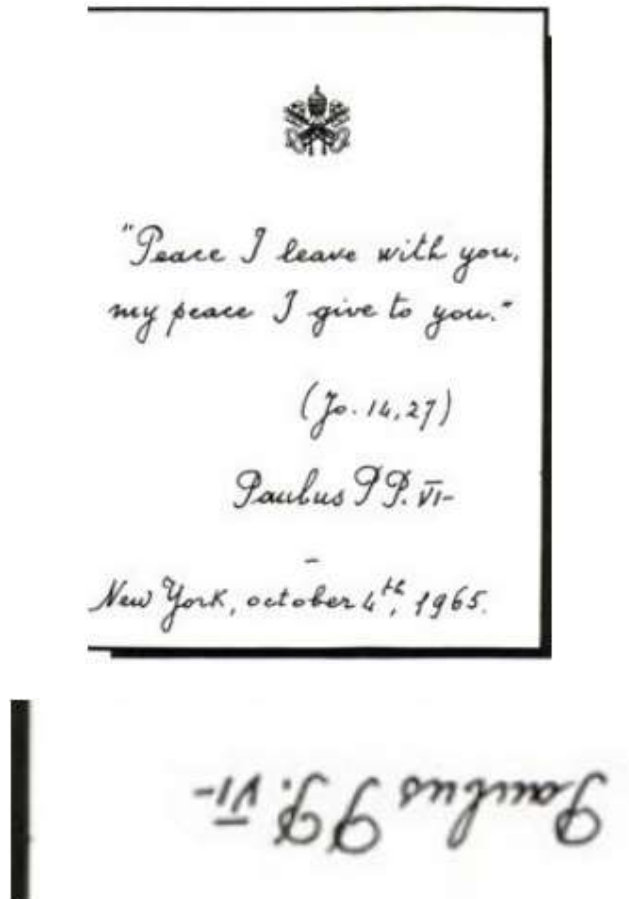 "Peace I leave with you,
my peace I give to you."
(Jo. 14,27)
Paulus PP. VI-
New York, october 4th, 1965.
Paulus PP. VI-